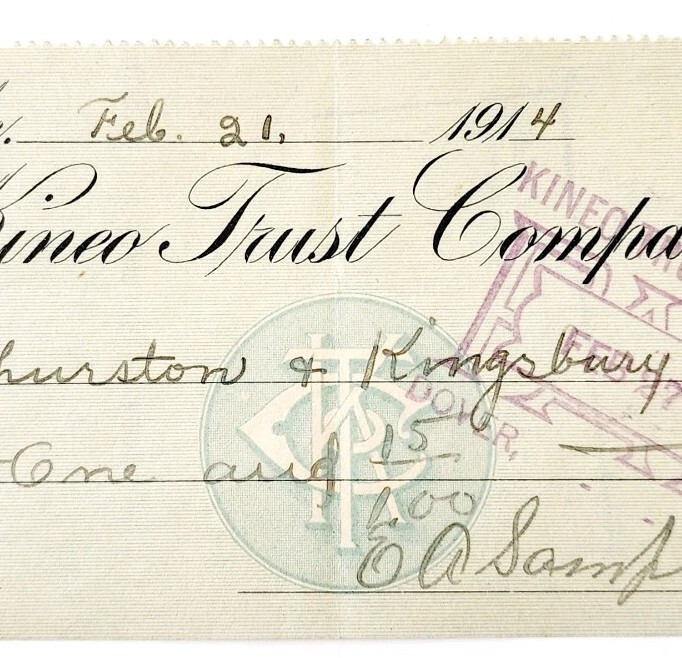 Feb. 21, 1914
Kineo Trust Compa
KINEO TRU
hurston & Kingsbury
FEB 27
DOVER,
One and 15/100
E A Samp